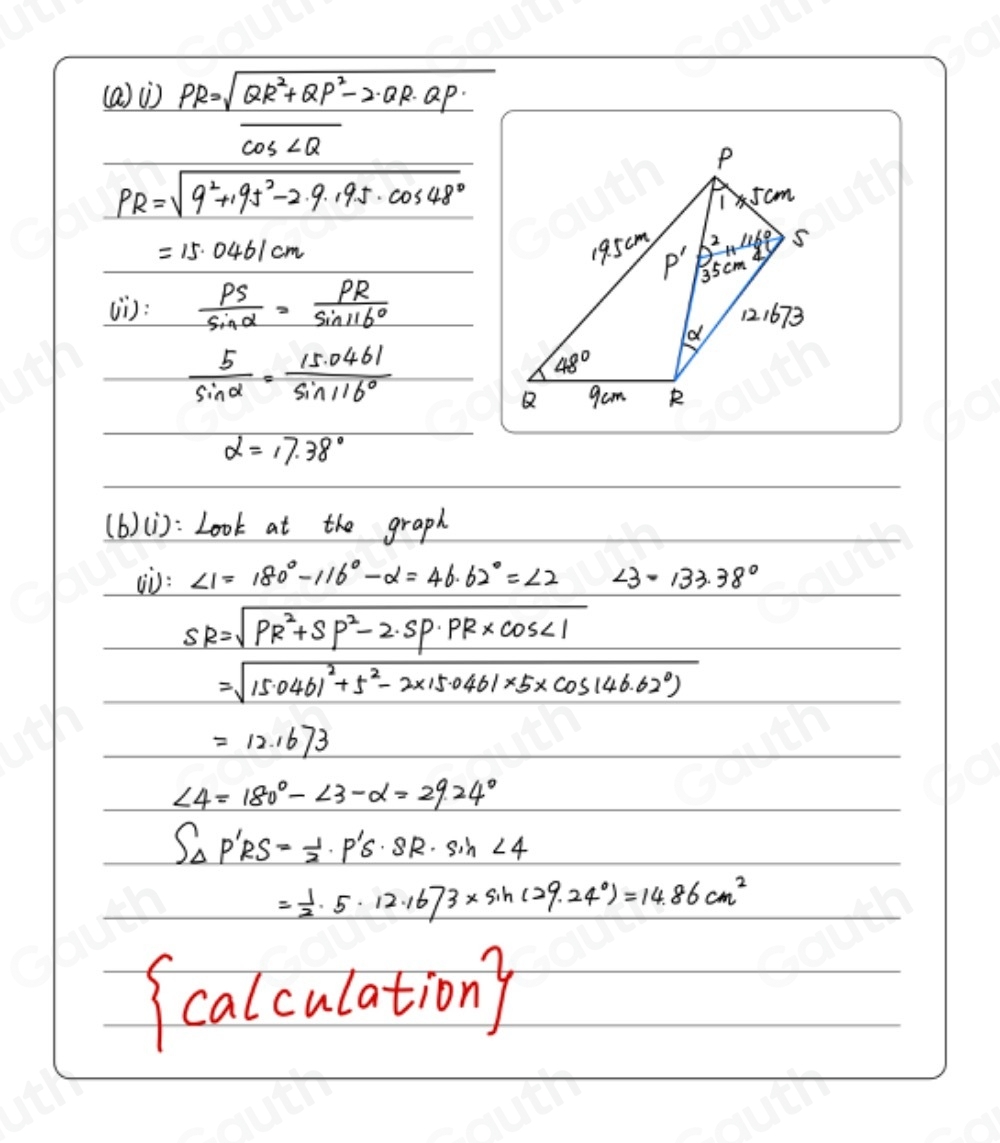 (a)(i) PR=√QR²+QP²-2·QR·QP·
cos∠Q
PR=√9²+19.5²-2·9·19.5·cos48°
=15.0461cm
(ii): PS/sinα = PR/sin116°
5/sinα = 15.0461/sin116°
α=17.38°
P
1
5cm
19.5cm
2
116°
S
P'
3
5cm
4
12.1673
α
48°
Q
9cm
R
(b)(i): Look at the graph
(ii): ∠1= 180°-116°-α=46.62°=∠2 ∠3=133.38°
SR=√PR²+SP²-2·SP·PR×cos∠1
=√15.0461²+5²-2×15.0461×5×cos(46.62°)
= 12.1673
∠4=180°-∠3-α=29.24°
S△P'RS=1/2·P'S·SR·sin∠4
=1/2·5·12.1673×sin(29.24°)=14.86cm²
{calculation}
Gauth